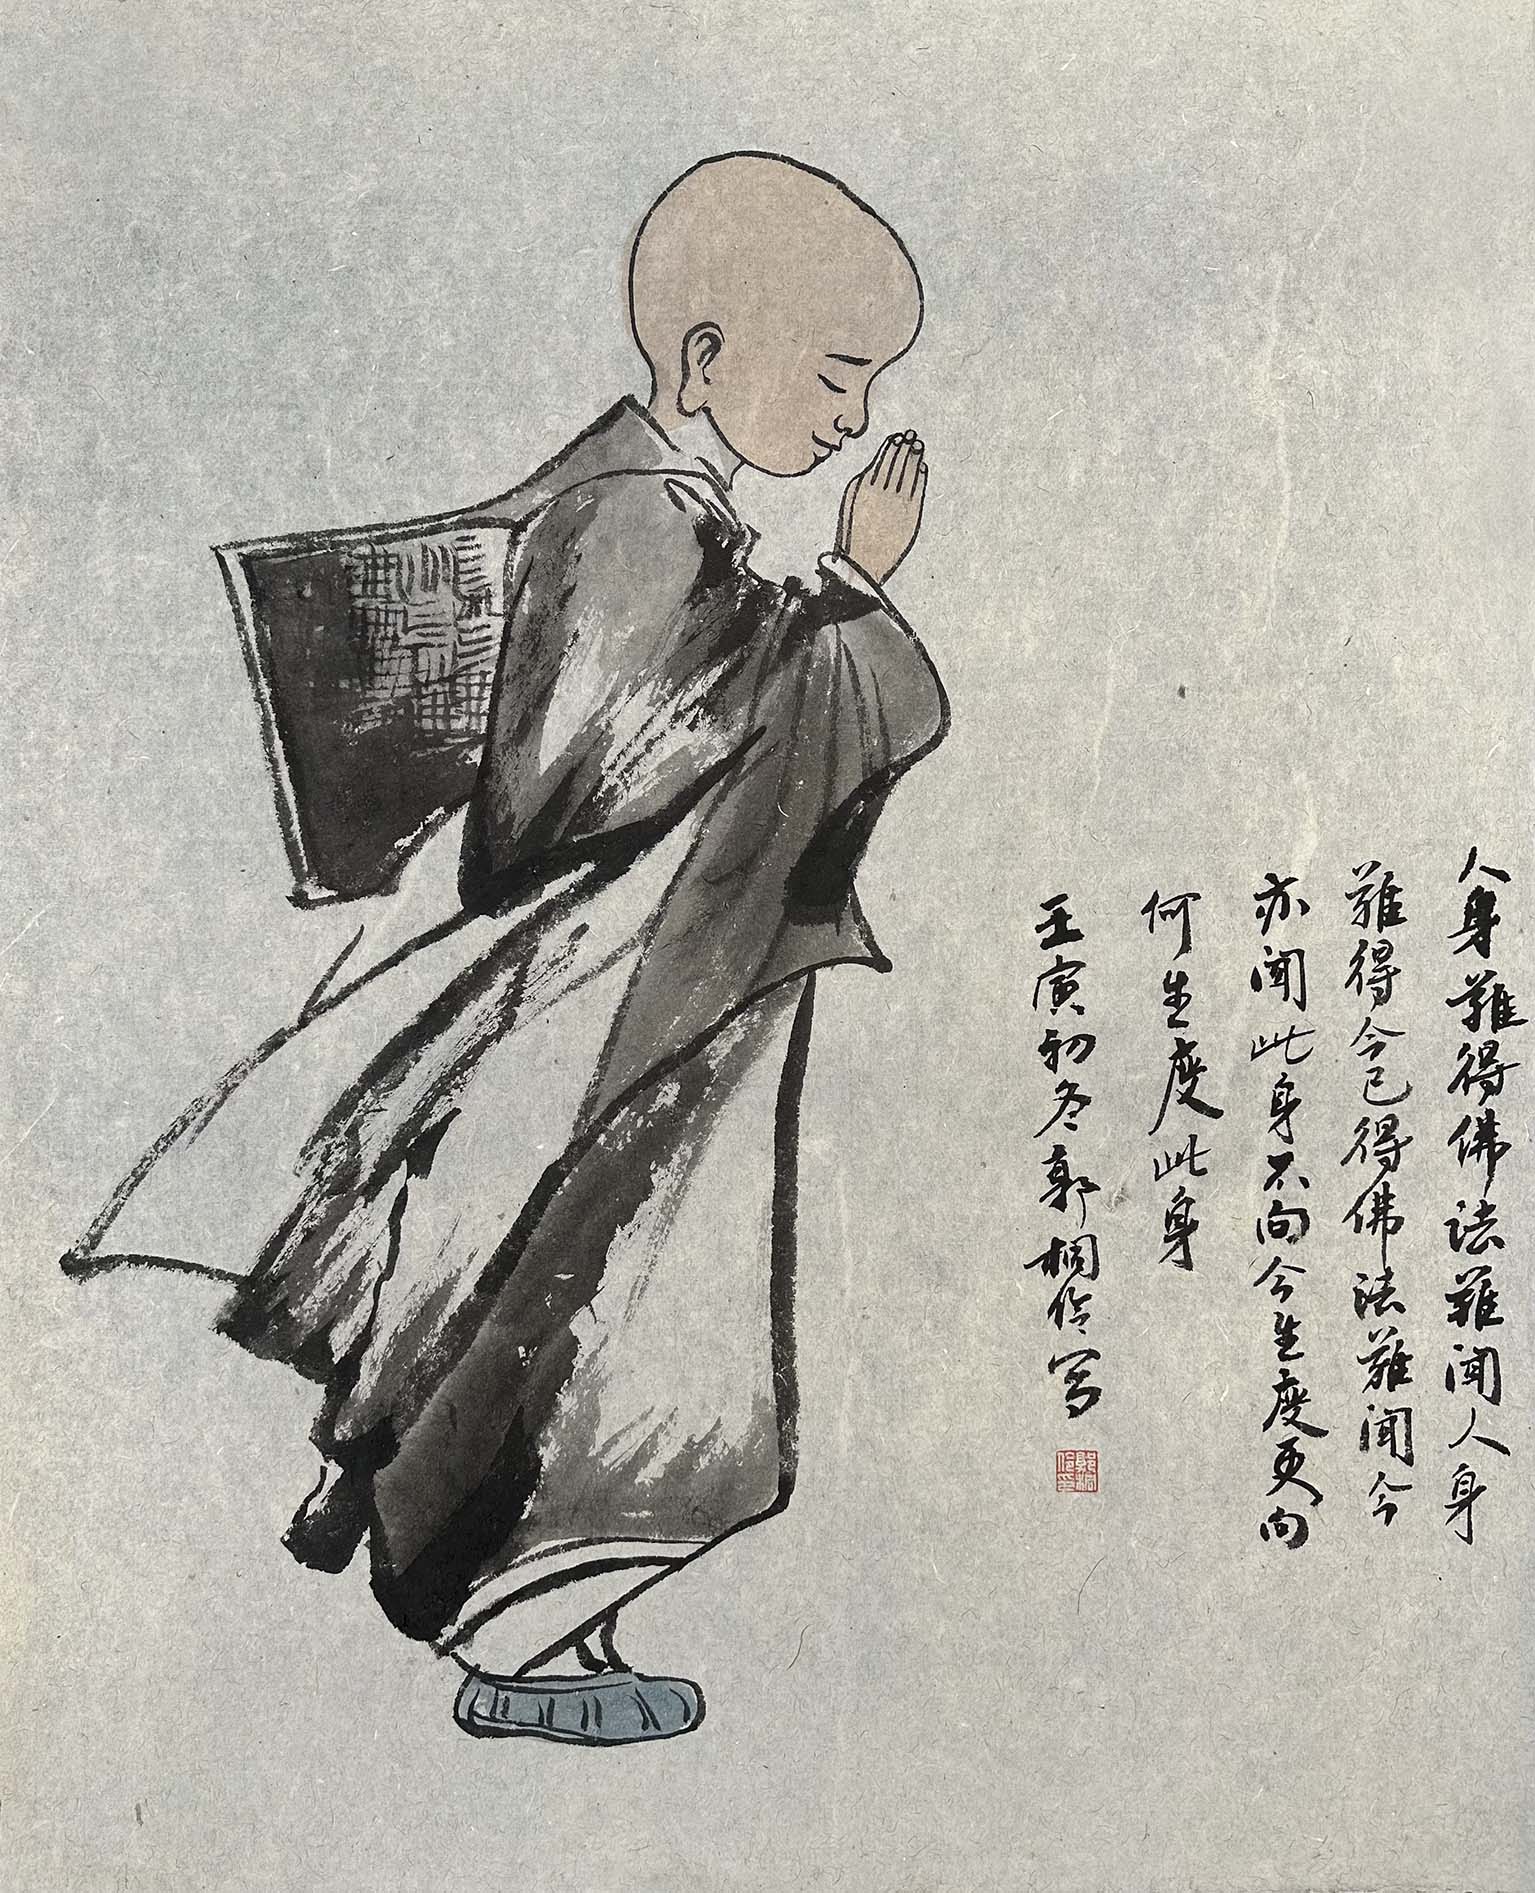 人身難得佛法難闻人身
難得今已得佛法難闻今
亦闻此身不向今生度更向
何生度此身
壬寅初冬郭桐伶写
郭桐伶印